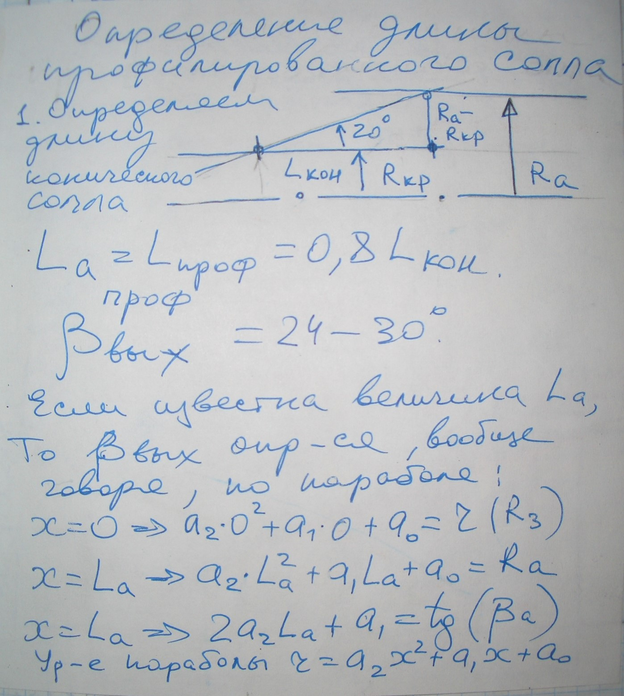 Определение длины
профилированного сопла
1. Определяем
длину
конического
сопла
20°
Ra-
Rкр
Lкон
Rкр
Ra
La = Lпроф = 0,8 Lкон.
проф
βвых = 24 – 30°.
Если известна величина La,
То βвых опр-ся, вообще
говоря, по параболе:
x=0 => a₂·0²+a₁·0+a₀=r(R₃)
x=La => a₂·La²+a₁La+a₀=Ra
x=La => 2a₂La+a₁=tg(βa)
Ур-е параболы r=a₂x²+a₁x+a₀